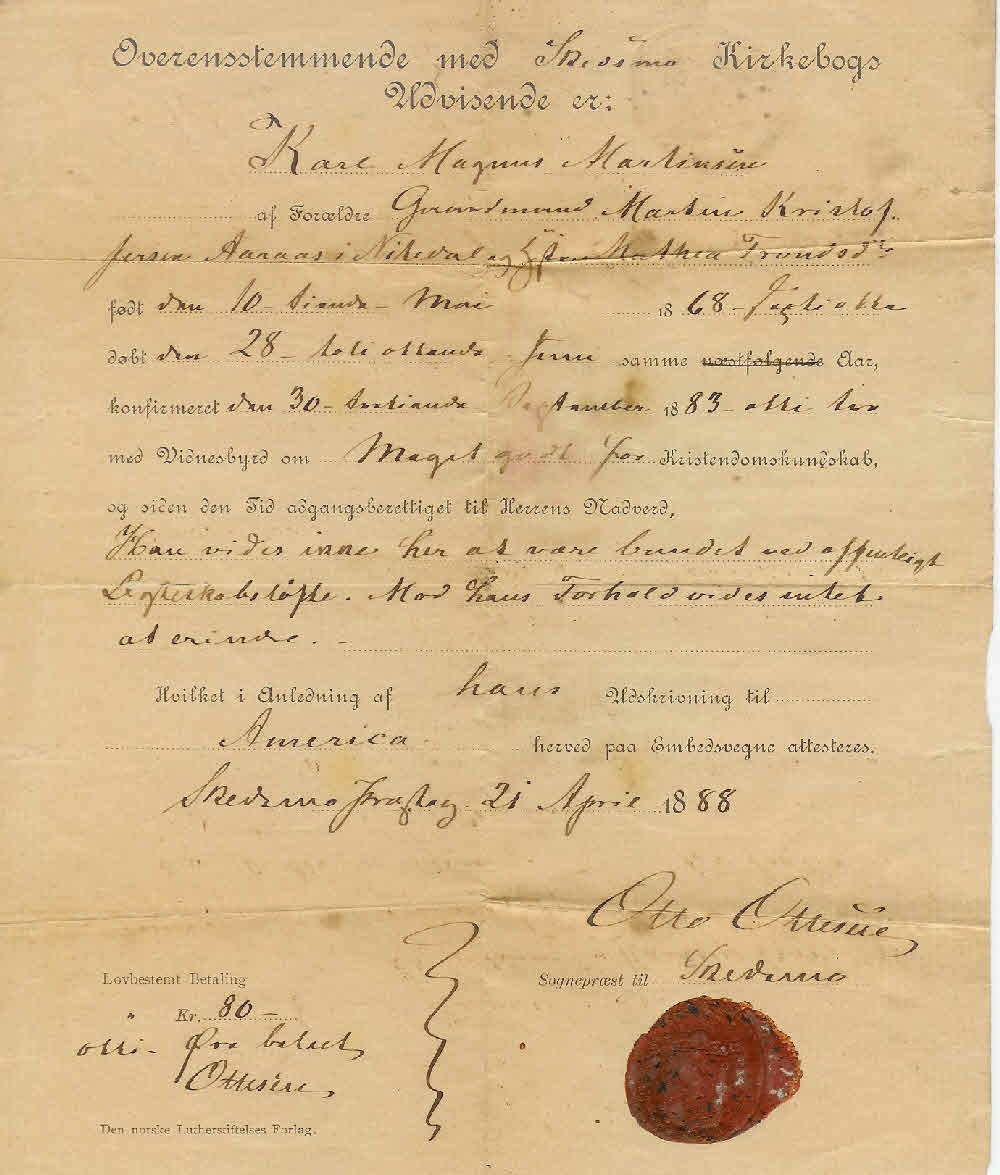 Overensstemmende med Skedsmo Kirkebogs
Udvisende er:
Karl Magnus Martinsen
af Forældre Gaardmand Martin Kristof
fersen Aaraas i Nitedal og Hustru Mathea Trondsdr
født den 10 - tiende - Mai 1868 - sexti otte
døbt den 28 - toti ottende Juni samme næstfølgende Aar,
konfirmeret den 30 - trettiende September 1883 - otti tre
med Vidnesbyrd om Meget godt for Kristendomskundskab,
og siden den Tid adgangsberettiget til Herrens Nadverd,
Han vides ikke her at være bundet ved offentligt
Ægteskabsløfte. Mod hans Forhold vides intet
at erindre. -
Hvilket i Anledning af hans Udskrivning til
America herved paa Embedsvegne attesteres.
Skedsmo Præsteg. 21 April 1888
Otto Ottesen
Sognepræst til Skedsmo
Lovbestemt Betaling
" Kr. 80 -
otti - Øre betalt
Ottesen
Den norske Lutherstiftelses Forlag.